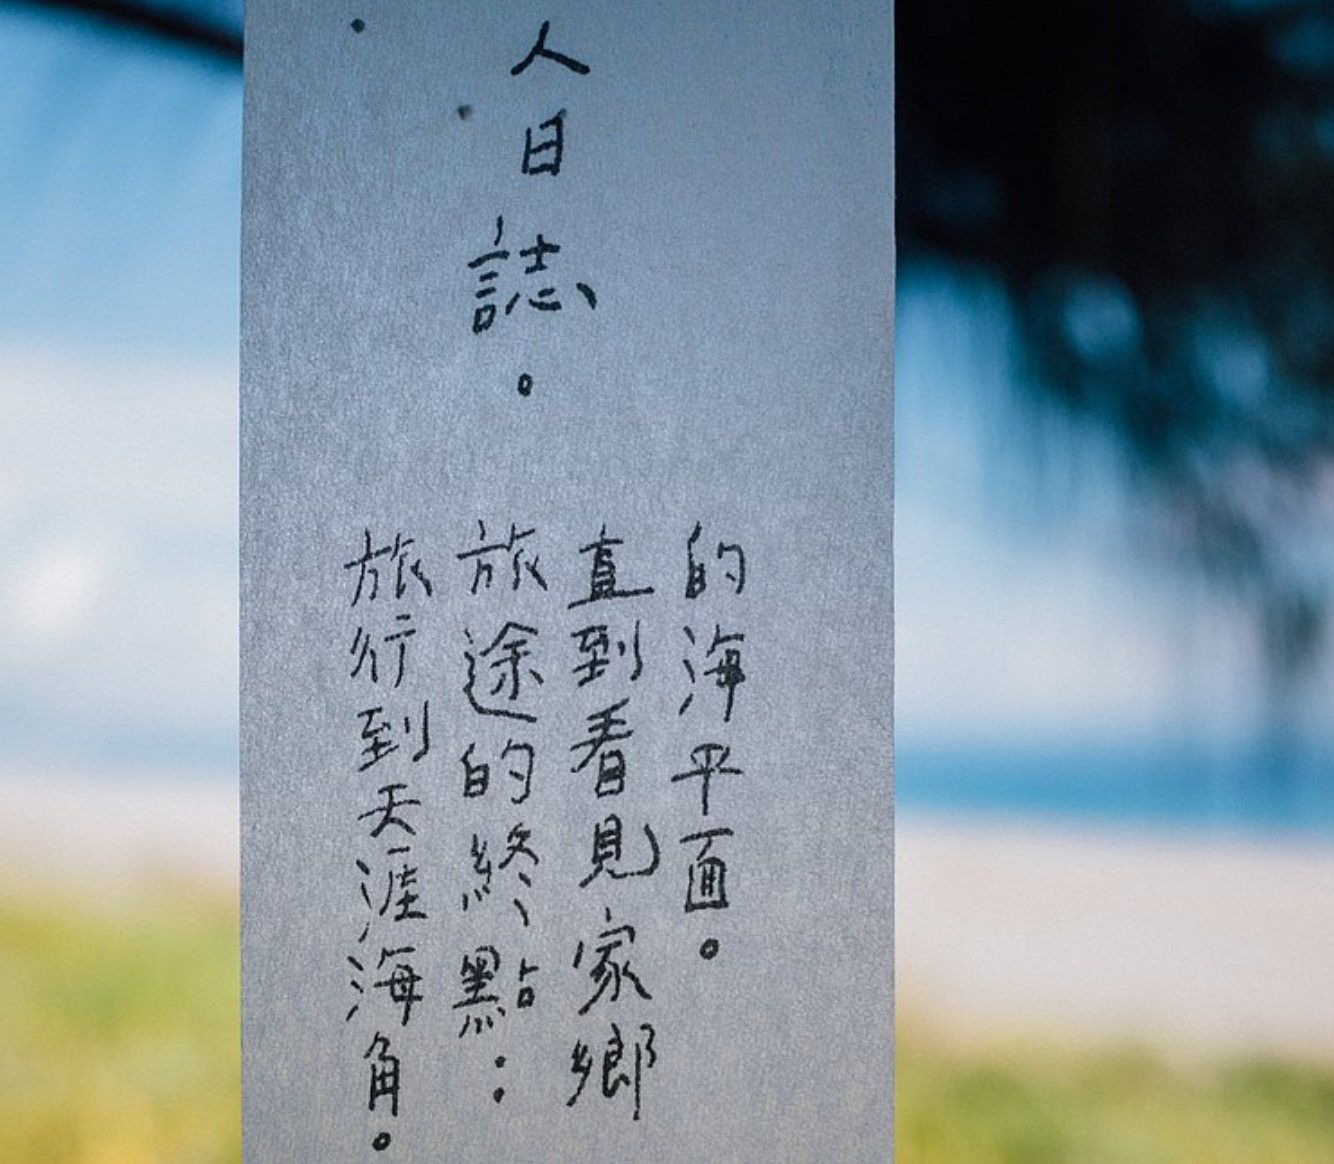 人日誌。
旅行到天涯海角。
旅途的終點：
直到看見家鄉
的海平面。